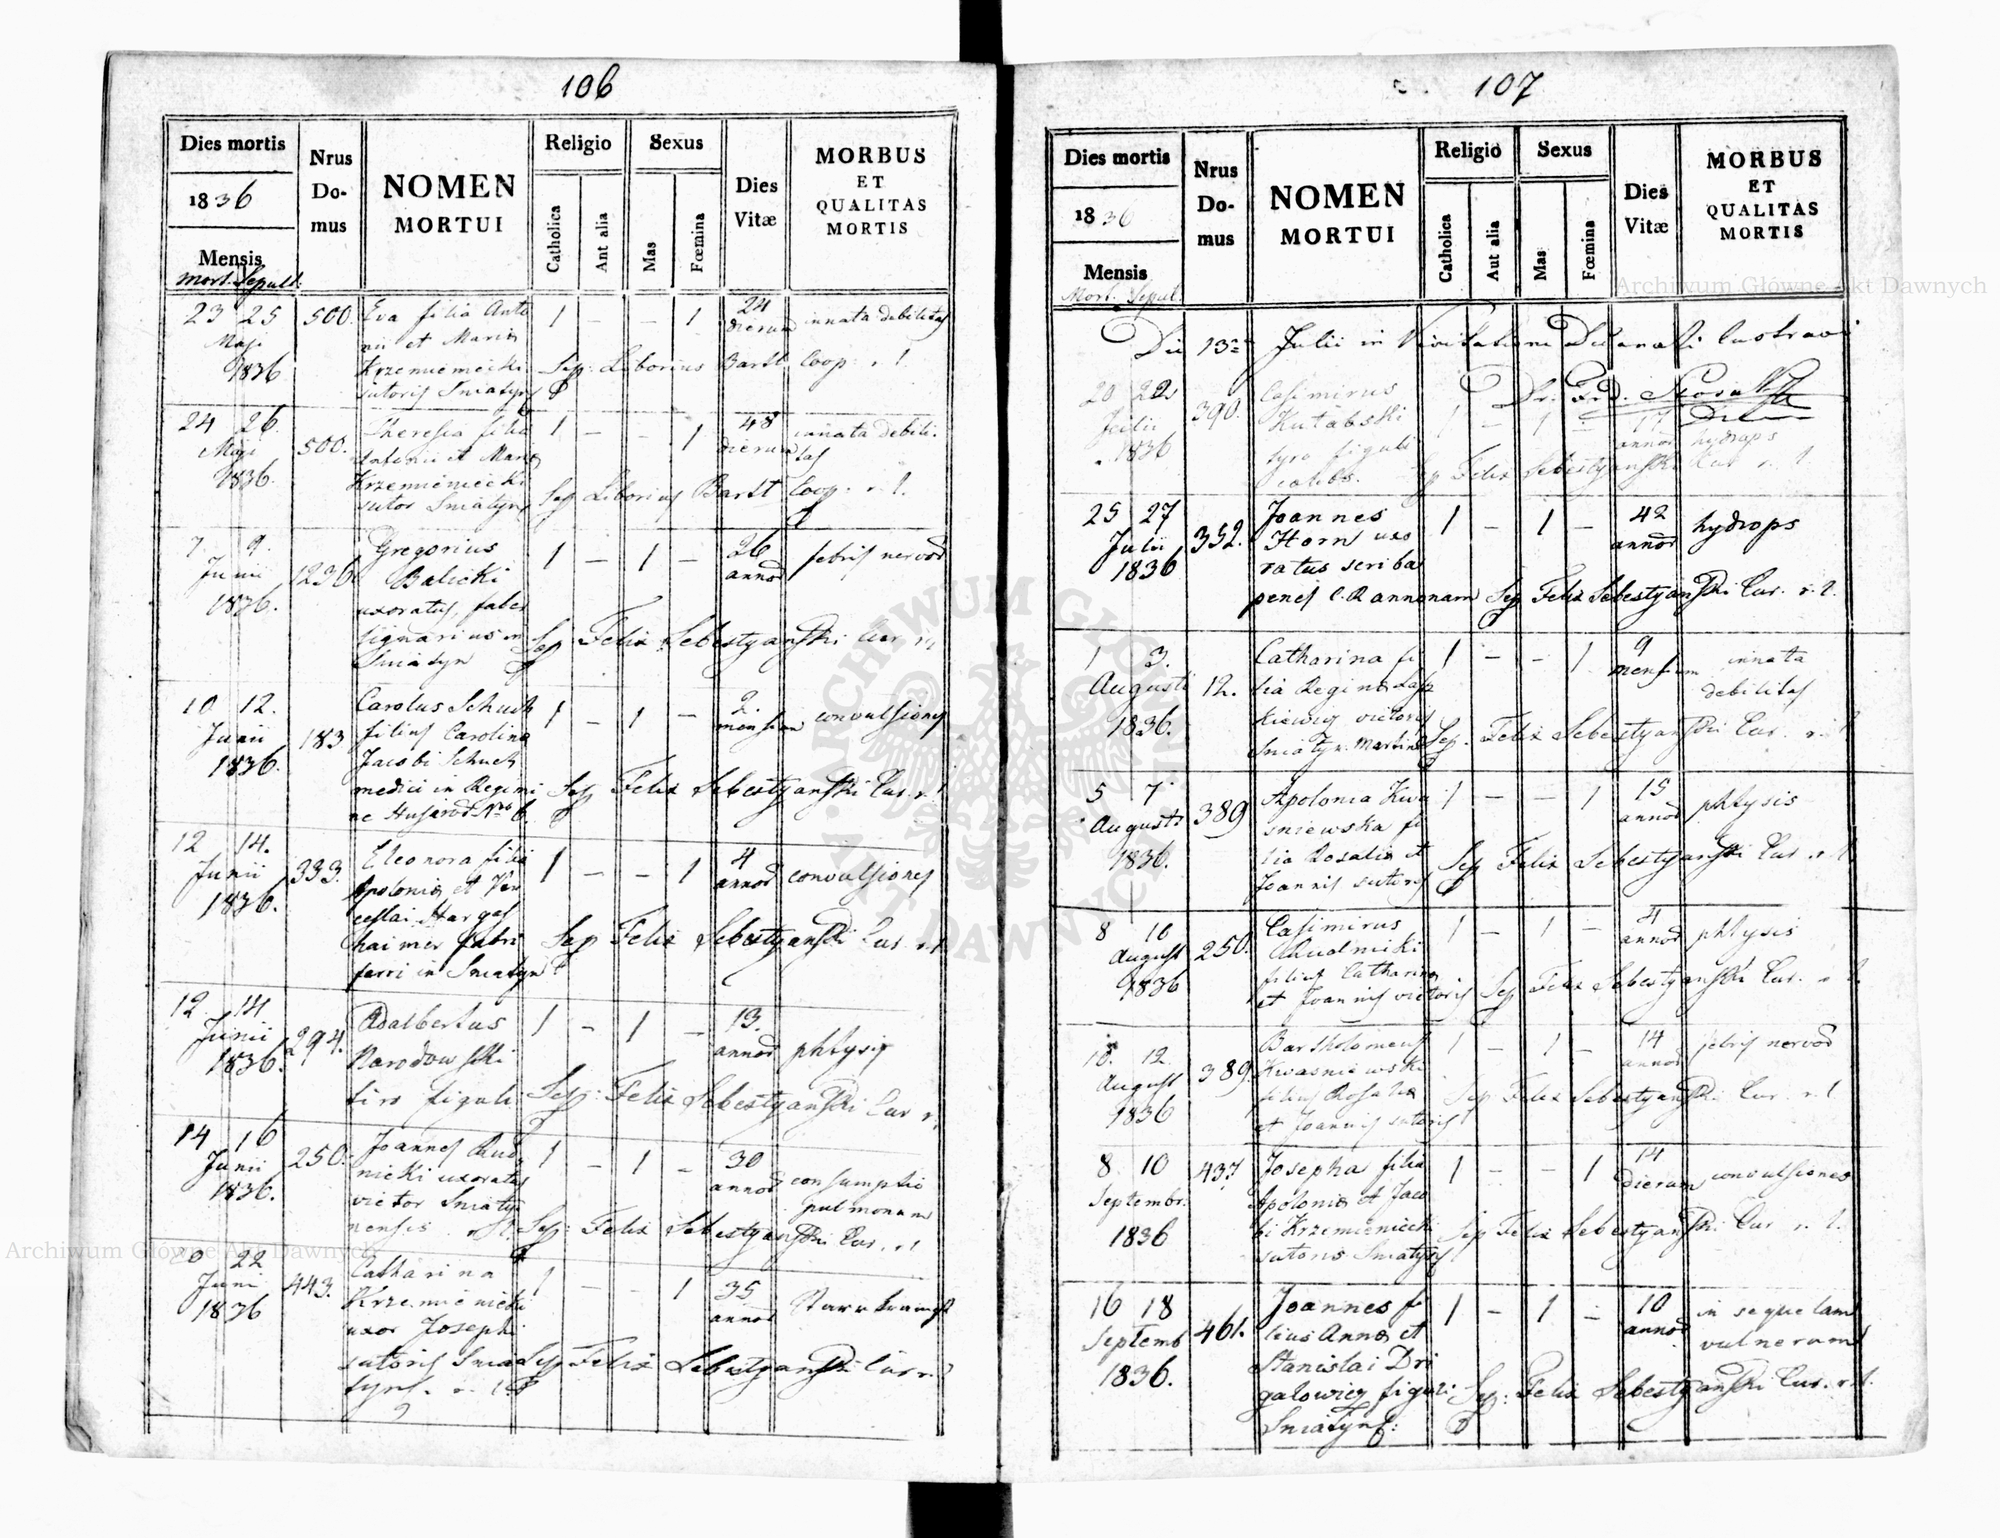 106
Dies mortis
1836
Mensis
Mort. Sepult.
Nrus
Do-
mus
NOMEN
MORTUI
Religio
Catholica
Aut alia
Sexus
Mas
Fœmina
Dies
Vitæ
MORBUS
ET
QUALITAS
MORTIS
23 25 500. Eva filia Anto 1 – – 1 24
Maji nii et Maria dierum innata debilitas
1836 Krzemieniecki Sep: Liborius Bartt Coop. r. l.
sutoris Sniatyn
24 26. Theresia filia 1 – – 1 48
Maji 500. Antonii et Maria dierum innata debili
tas
1836. Krzemieniecki Sep Liborius Bartt Coop. r. l.
sutor Sniatyn
7. 9. Gregorius 1 – 1 – 26 febris nervos
Junii 1236 Balicki annor
1836. uxoratus, faber
lignarius in Sep Felix Sebestyanski Cur. r. l.
Sniatyn
10 12. Carolus Schuch 1 – 1 – 2. convulsiones
Junii 183 filius Carolina mensium
1836. Jacobi Schuch
medici in Regimi Sep Felix Sebestyanski Cur. r. l.
ne Husarod Nro 6.
12 14. Eleonora filia 1 – – 1 4
Junii 333. Apolonia et annor convulsiones
1836.
haimer fabri Sep Felix Sebestyanski Cur. r. l.
ferri in Sniatyn
12 14 Adalbertus 1 – 1 – 13.
Junii 294. Narodowski annor phtysis
1836.
tiro figuli Sep: Felix Sebestyanski Cur r. l.
14 16 Joannes Rud 1 – 1 – 30
Junii 250. nicki uxoratus annor consumptio
1836. victor Sniaty pulmonum
nensis Sep: Felix Sebestyanski Cur. r. l.
20 22 Catharina 1 – – 1 35
Juni 443. Krzemieniecki annor Starrkrampf
1836 uxor Josephi
sutoris Snia Sep Felix Sebestyanski Cur r. l.
tyns. r. l.
107
Dies mortis
1836
Mensis
Mort. Sepul.
Nrus
Do-
mus
NOMEN
MORTUI
Religio
Catholica
Aut alia
Sexus
Mas
Fœmina
Dies
Vitæ
MORBUS
ET
QUALITAS
MORTIS
Die 13a Julii in Visitatione Decanali lustravi
20 22 Casimirus
Julii 390. Kutabski 1 – 1 – 17
1836 tyro figuli annor hydrops
caelebs. Sep Felix Sebestyanski Cur r. l.
25 27 Joannes 1 – 1 – 42 hydrops
Julii 352. Horn uxo annor
1836 ratus scriba
penes C. R annonam Sep Felix Sebestyanski Cur. r. l.
1 3. Catharina fi 1 – – 1 9 innata
Augusti 12. lia Regina mensium debilitas
1836. victoris
Sniatyn. Martini Sep. Felix Sebestyanski Cur. r. l.
5 7 Apolonia Kwa 1 – – 1 15 phtysis
Augusti 389 sniewska fi annor
1836. lia Rosalia et Sep Felix Sebestyanski Cur. r. l.
Joannis sutoris
8 10 Casimirus 1 – 1 – 4 phtysis
August 250. Rudnicki annor
1836 filius Catharina
et Joannis victoris Sep Felix Sebestyanski Cur. r. l.
10. 12 Bartholomeus 1 – 1 – 14 febris nervos
August 389. Kwasniewski annor
1836 filius Rosalia Sep Felix Sebestyanski Cur. r. l
et Joannis sutoris
8 10 437 Josepha filia 1 – – 1 14
Septembr. Apolonia et Jaco dierum convulsiones
1836 bi Krzemieniecki Sep Felix Sebestyanski Cur r. l.
sutoris Sniatyn
16 18 Joannes fi 1 – 1 – 10 in sequelam
Septemb 461. lius Anna et annor vulnerum
1836. Stanislai Dri
galowicz figuli Sep: Felix Sebestyanski Cur. r. l.
Sniatyns:
Archiwum Główne Akt Dawnych
Archiwum Główne Akt Dawnych
ARCHIWUM GŁÓWNE AKT DAWNYCH